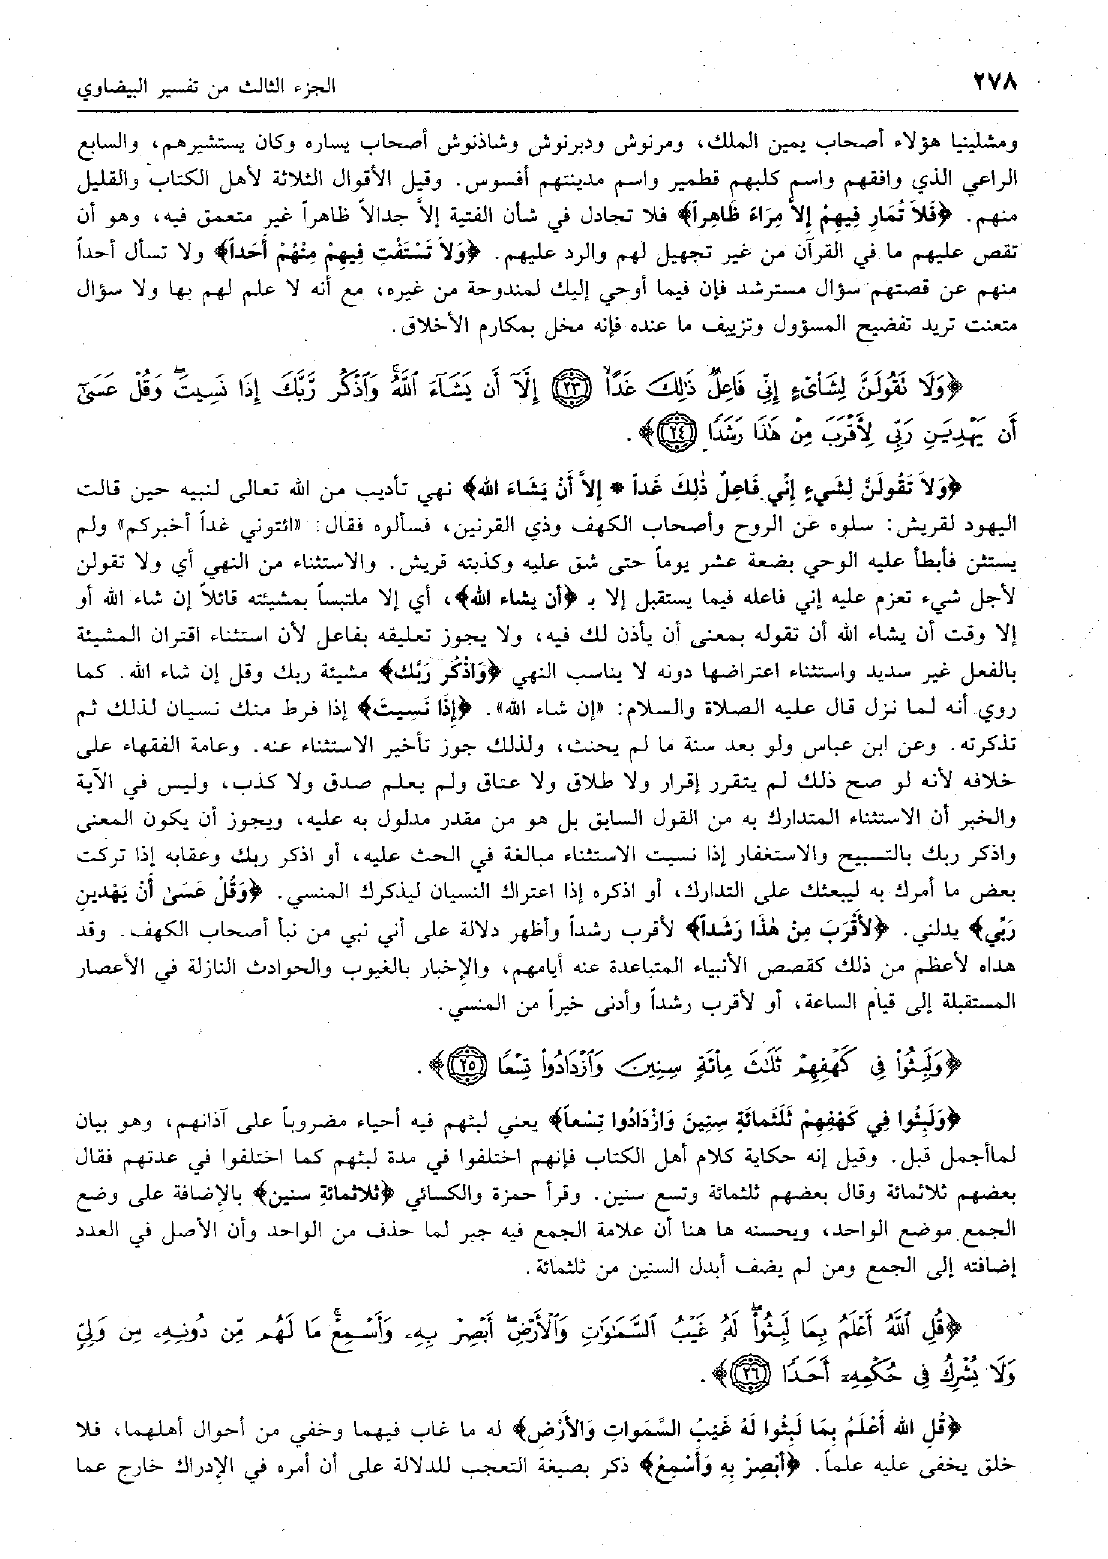 ٢٧٨ الجزء الثالث من تفسير البيضاوي
ومشلينيا هؤلاء أصحاب يمين الملك، ومرنوش ودبرنوش وشاذنوش أصحاب يساره وكان يستشيرهم، والسابع
الراعي الذي وافقهم واسم كلبهم قطمير واسم مدينتهم أفسوس. وقيل الأقوال الثلاثة لأهل الكتاب والقليل
منهم. ﴿فَلاَ تُمَارِ فِيهِمْ إِلاَّ مِرَاءً ظَاهِراً﴾ فلا تجادل في شأن الفتية إلاَّ جدالاً ظاهراً غير متعمق فيه، وهو أن
تقص عليهم ما في القرآن من غير تجهيل لهم والرد عليهم. ﴿وَلاَ تَسْتَفْتِ فِيهِمْ مِنْهُمْ أَحَداً﴾ ولا تسأل أحداً
منهم عن قصتهم سؤال مسترشد فإن فيما أوحي إليك لمندوحة من غيره، مع أنه لا علم لهم بها ولا سؤال
متعنت تريد تفضيح المسؤول وتزييف ما عنده فإنه مخل بمكارم الأخلاق.
﴿وَلَا تَقُولَنَّ لِشَاْىْءٍ إِنِّى فَاعِلٌ ذَٰلِكَ غَدًا ۝٢٣ إِلَّآ أَن يَشَآءَ ٱللَّهُ ۚ وَٱذْكُر رَّبَّكَ إِذَا نَسِيتَ وَقُلْ عَسَىٰٓ
أَن يَهْدِيَنِ رَبِّى لِأَقْرَبَ مِنْ هَٰذَا رَشَدًا ۝٢٤﴾.
﴿وَلاَ تَقُولَنَّ لِشَيْءٍ إِنِّي فَاعِلٌ ذٰلِكَ غَداً * إِلاَّ أَنْ يَشَاءَ الله﴾ نهي تأديب من الله تعالى لنبيه حين قالت
اليهود لقريش: سلوه عن الروح وأصحاب الكهف وذي القرنين، فسألوه فقال: «ائتوني غداً أخبركم» ولم
يستثن فأبطأ عليه الوحي بضعة عشر يوماً حتى شق عليه وكذبته قريش. والاستثناء من النهي أي ولا تقولن
لأجل شيء تعزم عليه إني فاعله فيما يستقبل إلا بـ ﴿أن يشاء الله﴾، أي إلا ملتبساً بمشيئته قائلاً إن شاء الله أو
إلا وقت أن يشاء الله أن تقوله بمعنى أن يأذن لك فيه، ولا يجوز تعليقه بفاعل لأن استثناء اقتران المشيئة
بالفعل غير سديد واستثناء اعتراضها دونه لا يناسب النهي ﴿وَاذْكُر رَبَّكَ﴾ مشيئة ربك وقل إن شاء الله. كما
روي أنه لما نزل قال عليه الصلاة والسلام: «إن شاء الله». ﴿إِذَا نَسِيتَ﴾ إذا فرط منك نسيان لذلك ثم
تذكرته. وعن ابن عباس ولو بعد سنة ما لم يحنث، ولذلك جوز تأخير الاستثناء عنه. وعامة الفقهاء على
خلافه لأنه لو صح ذلك لم يتقرر إقرار ولا طلاق ولا عتاق ولم يعلم صدق ولا كذب، وليس في الآية
والخبر أن الاستثناء المتدارك به من القول السابق بل هو من مقدر مدلول به عليه، ويجوز أن يكون المعنى
واذكر ربك بالتسبيح والاستغفار إذا نسيت الاستثناء مبالغة في الحث عليه، أو اذكر ربك وعقابه إذا تركت
بعض ما أمرك به ليبعثك على التدارك، أو اذكره إذا اعتراك النسيان ليذكرك المنسي. ﴿وَقُلْ عَسَىٰ أَنْ يَهْدِينِ
رَبِّي﴾ يدلني. ﴿لأَقْرَبَ مِنْ هٰذَا رَشَداً﴾ لأقرب رشداً وأظهر دلالة على أني نبي من نبأ أصحاب الكهف. وقد
هداه لأعظم من ذلك كقصص الأنبياء المتباعدة عنه أيامهم، والإخبار بالغيوب والحوادث النازلة في الأعصار
المستقبلة إلى قيام الساعة، أو لأقرب رشداً وأدنى خيراً من المنسي.
﴿وَلَبِثُوا۟ فِى كَهْفِهِمْ ثَلَٰثَ مِا۟ئَةٍ سِنِينَ وَٱزْدَادُوا۟ تِسْعًا ۝٢٥﴾.
﴿وَلَبِثُوا فِي كَهْفِهِمْ ثَلَثمائَةٍ سِنِينَ وَازْدَادُوا تِسْعاً﴾ يعني لبثهم فيه أحياء مضروباً على آذانهم، وهو بيان
لماأجمل قبل. وقيل إنه حكاية كلام أهل الكتاب فإنهم اختلفوا في مدة لبثهم كما اختلفوا في عدتهم فقال
بعضهم ثلاثمائة وقال بعضهم ثلثمائة وتسع سنين. وقرأ حمزة والكسائي ﴿ثلاثمائةِ سنين﴾ بالإضافة على وضع
الجمع موضع الواحد، ويحسنه ها هنا أن علامة الجمع فيه جبر لما حذف من الواحد وأن الأصل في العدد
إضافته إلى الجمع ومن لم يضف أبدل السنين من ثلثمائة.
﴿قُلِ ٱللَّهُ أَعْلَمُ بِمَا لَبِثُوا۟ ۖ لَهُۥ غَيْبُ ٱلسَّمَٰوَٰتِ وَٱلْأَرْضِ ۖ أَبْصِرْ بِهِۦ وَأَسْمِعْ ۚ مَا لَهُم مِّن دُونِهِۦ مِن وَلِىٍّ
وَلَا يُشْرِكُ فِى حُكْمِهِۦٓ أَحَدًا ۝٢٦﴾.
﴿قُلِ الله أَعْلَمُ بِمَا لَبِثُوا لَهُ غَيْبُ السَّمٰوَاتِ وَالأَرْضِ﴾ له ما غاب فيهما وخفي من أحوال أهلهما، فلا
خلق يخفى عليه علماً. ﴿أَبْصِرْ بِهِ وَأَسْمِعْ﴾ ذكر بصيغة التعجب للدلالة على أن أمره في الإدراك خارج عما